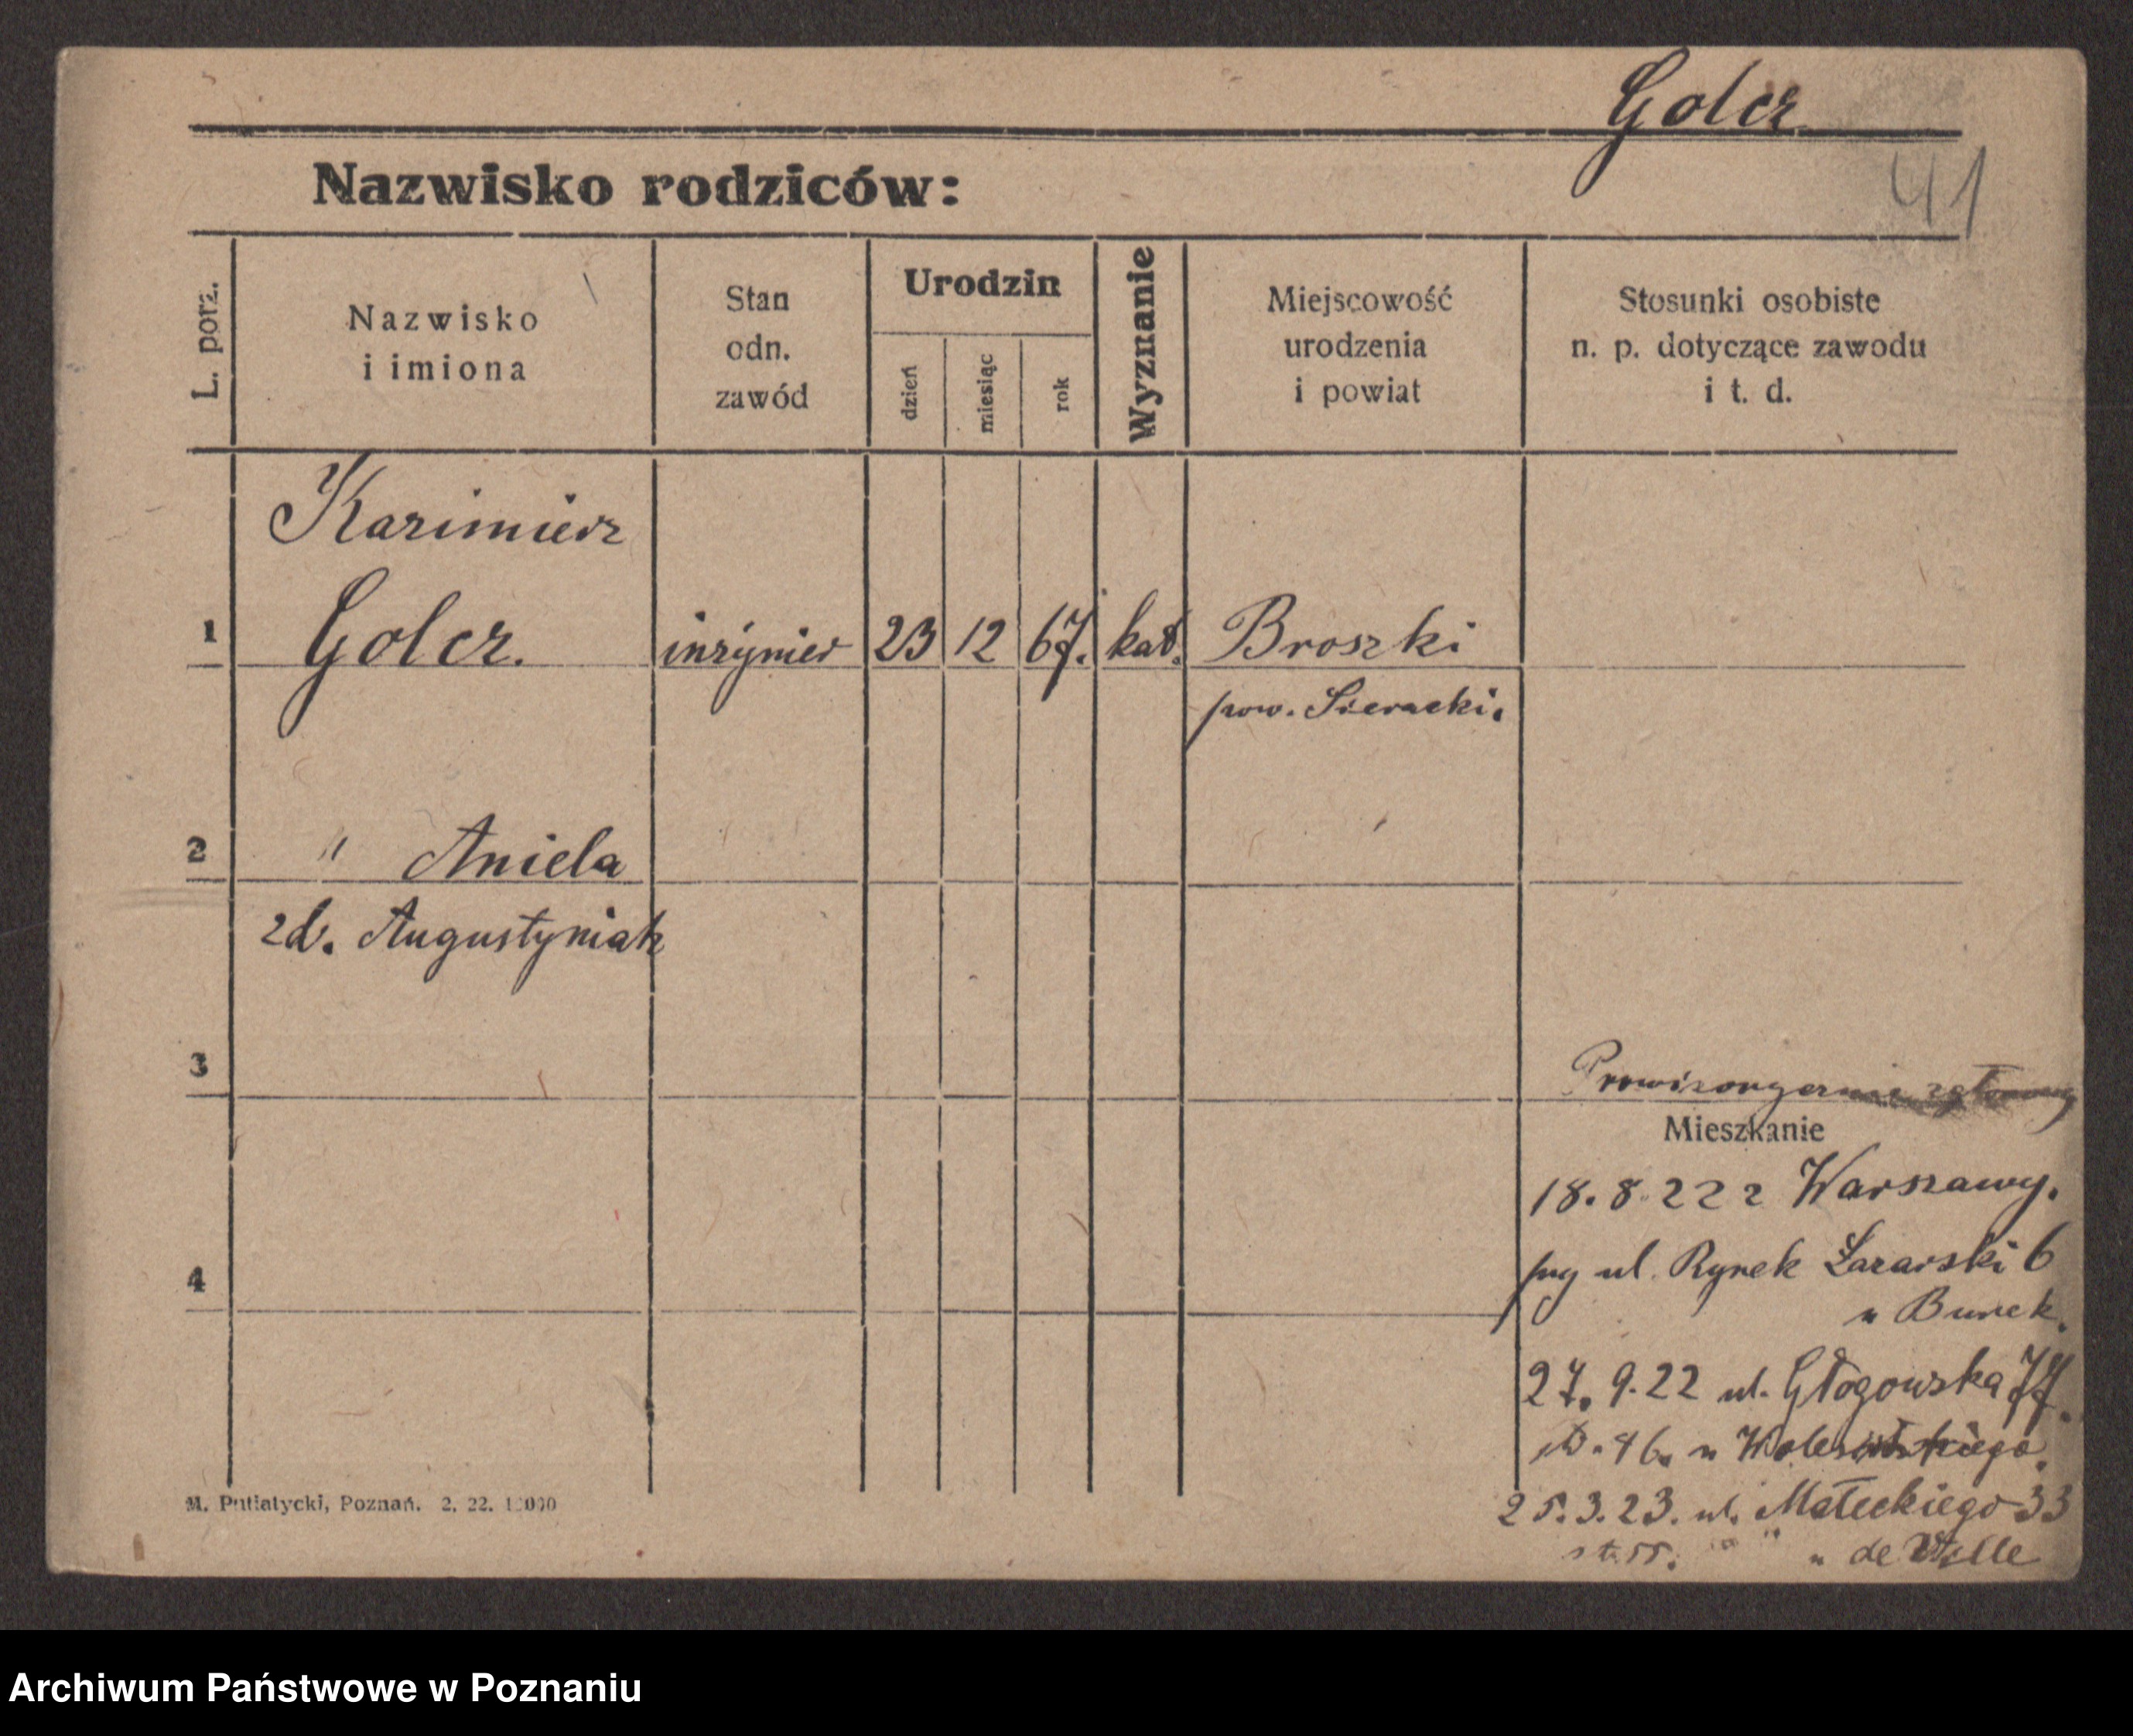 Golcz
41
Nazwisko rodziców:
L. porz.
Nazwisko
i imiona
Stan
odn.
zawód
Urodzin
dzień
miesiąc
rok
Wyznanie
Miejscowość
urodzenia
i powiat
Stosunki osobiste
n. p. dotyczące zawodu
i t. d.
Kazimierz
1 Golcz. inżynier 23 12 67. kat. Broszki
pow. Sieracki.
2 " Aniela
zd. Augustyniak
3
Prowizorycznie
Mieszkanie
18.8.22 z Warszawy.
4
ul. Rynek Łazarski 6
u Burek.
27.9.22 ul. Głogowska 77.
u
25.3.23. ul. Małeckiego 33
" " u de Wille
M. Putiatycki, Poznań. 2. 22.
Archiwum Państwowe w Poznaniu